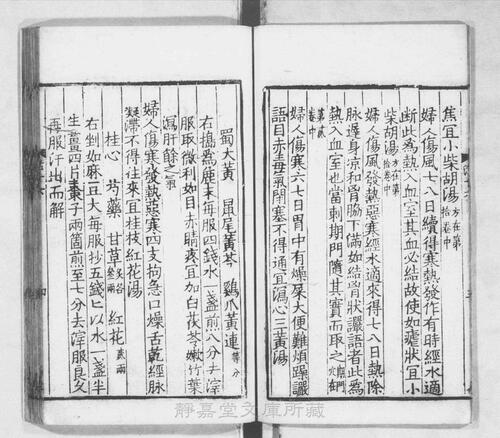 焦宜小柴胡湯方在第拾卷中
婦人傷風七八日續得寒熱發作有時經水適
斷此為熱入血室其血必結故使如瘧狀宜小
柴胡湯方在第拾卷中
婦人傷風發熱惡寒經水適來得七八日熱除
脉遲身涼和胷脇下滿如結胷狀讝語者此為
熱入血室也當刺期門隨其實而取之
第貳卷中
婦人傷寒六七日胃中有燥屎大便難煩躁讝
語目赤毒氣閉塞不得通宜瀉心三黄湯
蜀大黄 鼠尾黄芩 雞爪黄連等分
右擣為麄末每服四錢水一盞煎八分去滓
服取微利如目赤睛疼宜加白茯苓嫩竹葉
瀉肝餘之氣
婦人傷寒發熱惡寒四支拘急口燥舌乾經脉
凝滯不得往來宜桂枝紅花湯
桂心 芍藥 甘草炙各叁兩 紅花貳兩
右剉如麻豆大每服抄五錢匕以水一盞半
生薑四片棗子兩箇煎至七分去滓服良久
再服汗出而解
靜嘉堂文庫所藏